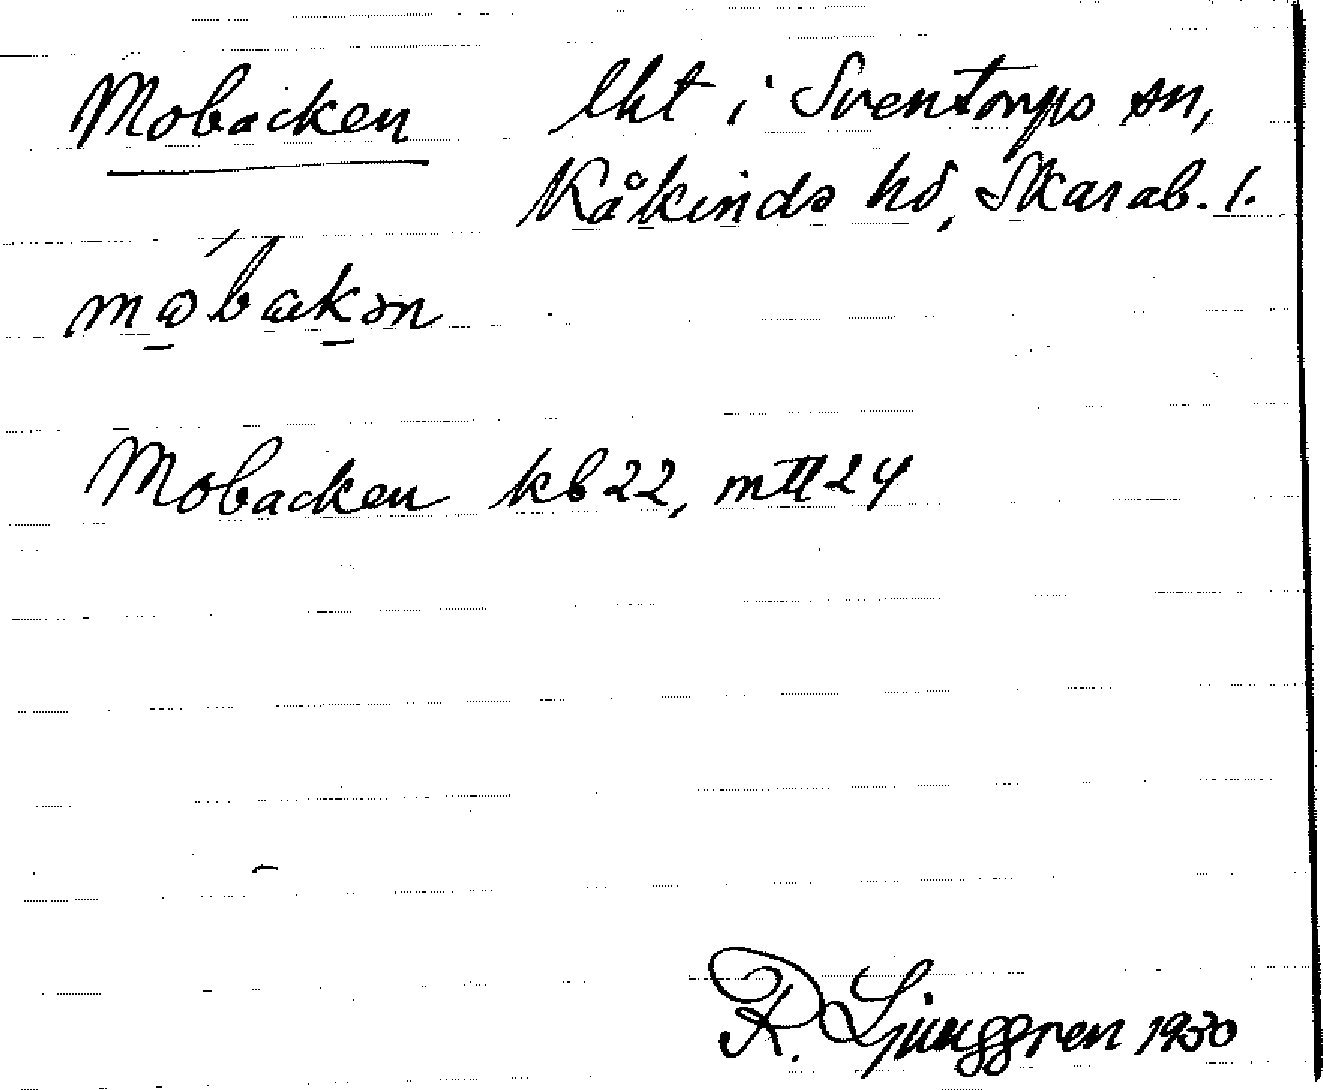 Mobacken lht i Sventorps sn,
Kåkinds hd, Skarab. l.
Mobacken kb 22, mtll 24
R. Ljunggren 1950